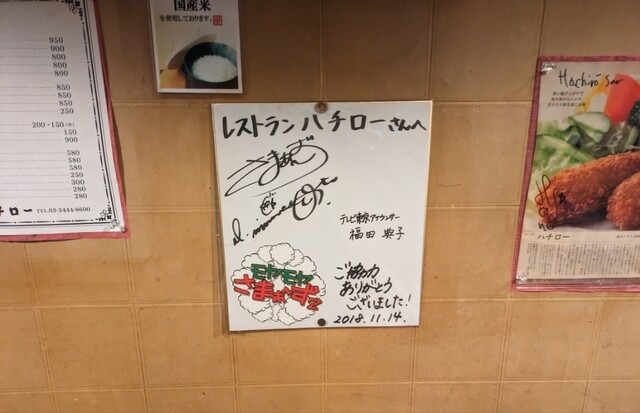 950
900
800
800
850
850
850
250
200・150(小)
150
900
580
580
580
300
280
280
チロー TEL.03-3444-8600
国産米
を使用しております。
レストラン ハチローさんへ
さまぁ〜ず
テレビ東京アナウンサー
福田 典子
モヤモヤ
さまぁ〜ず2
ご協力
ありがとう
ございました!
2018.11.14.
Hachirō San
ハチロー